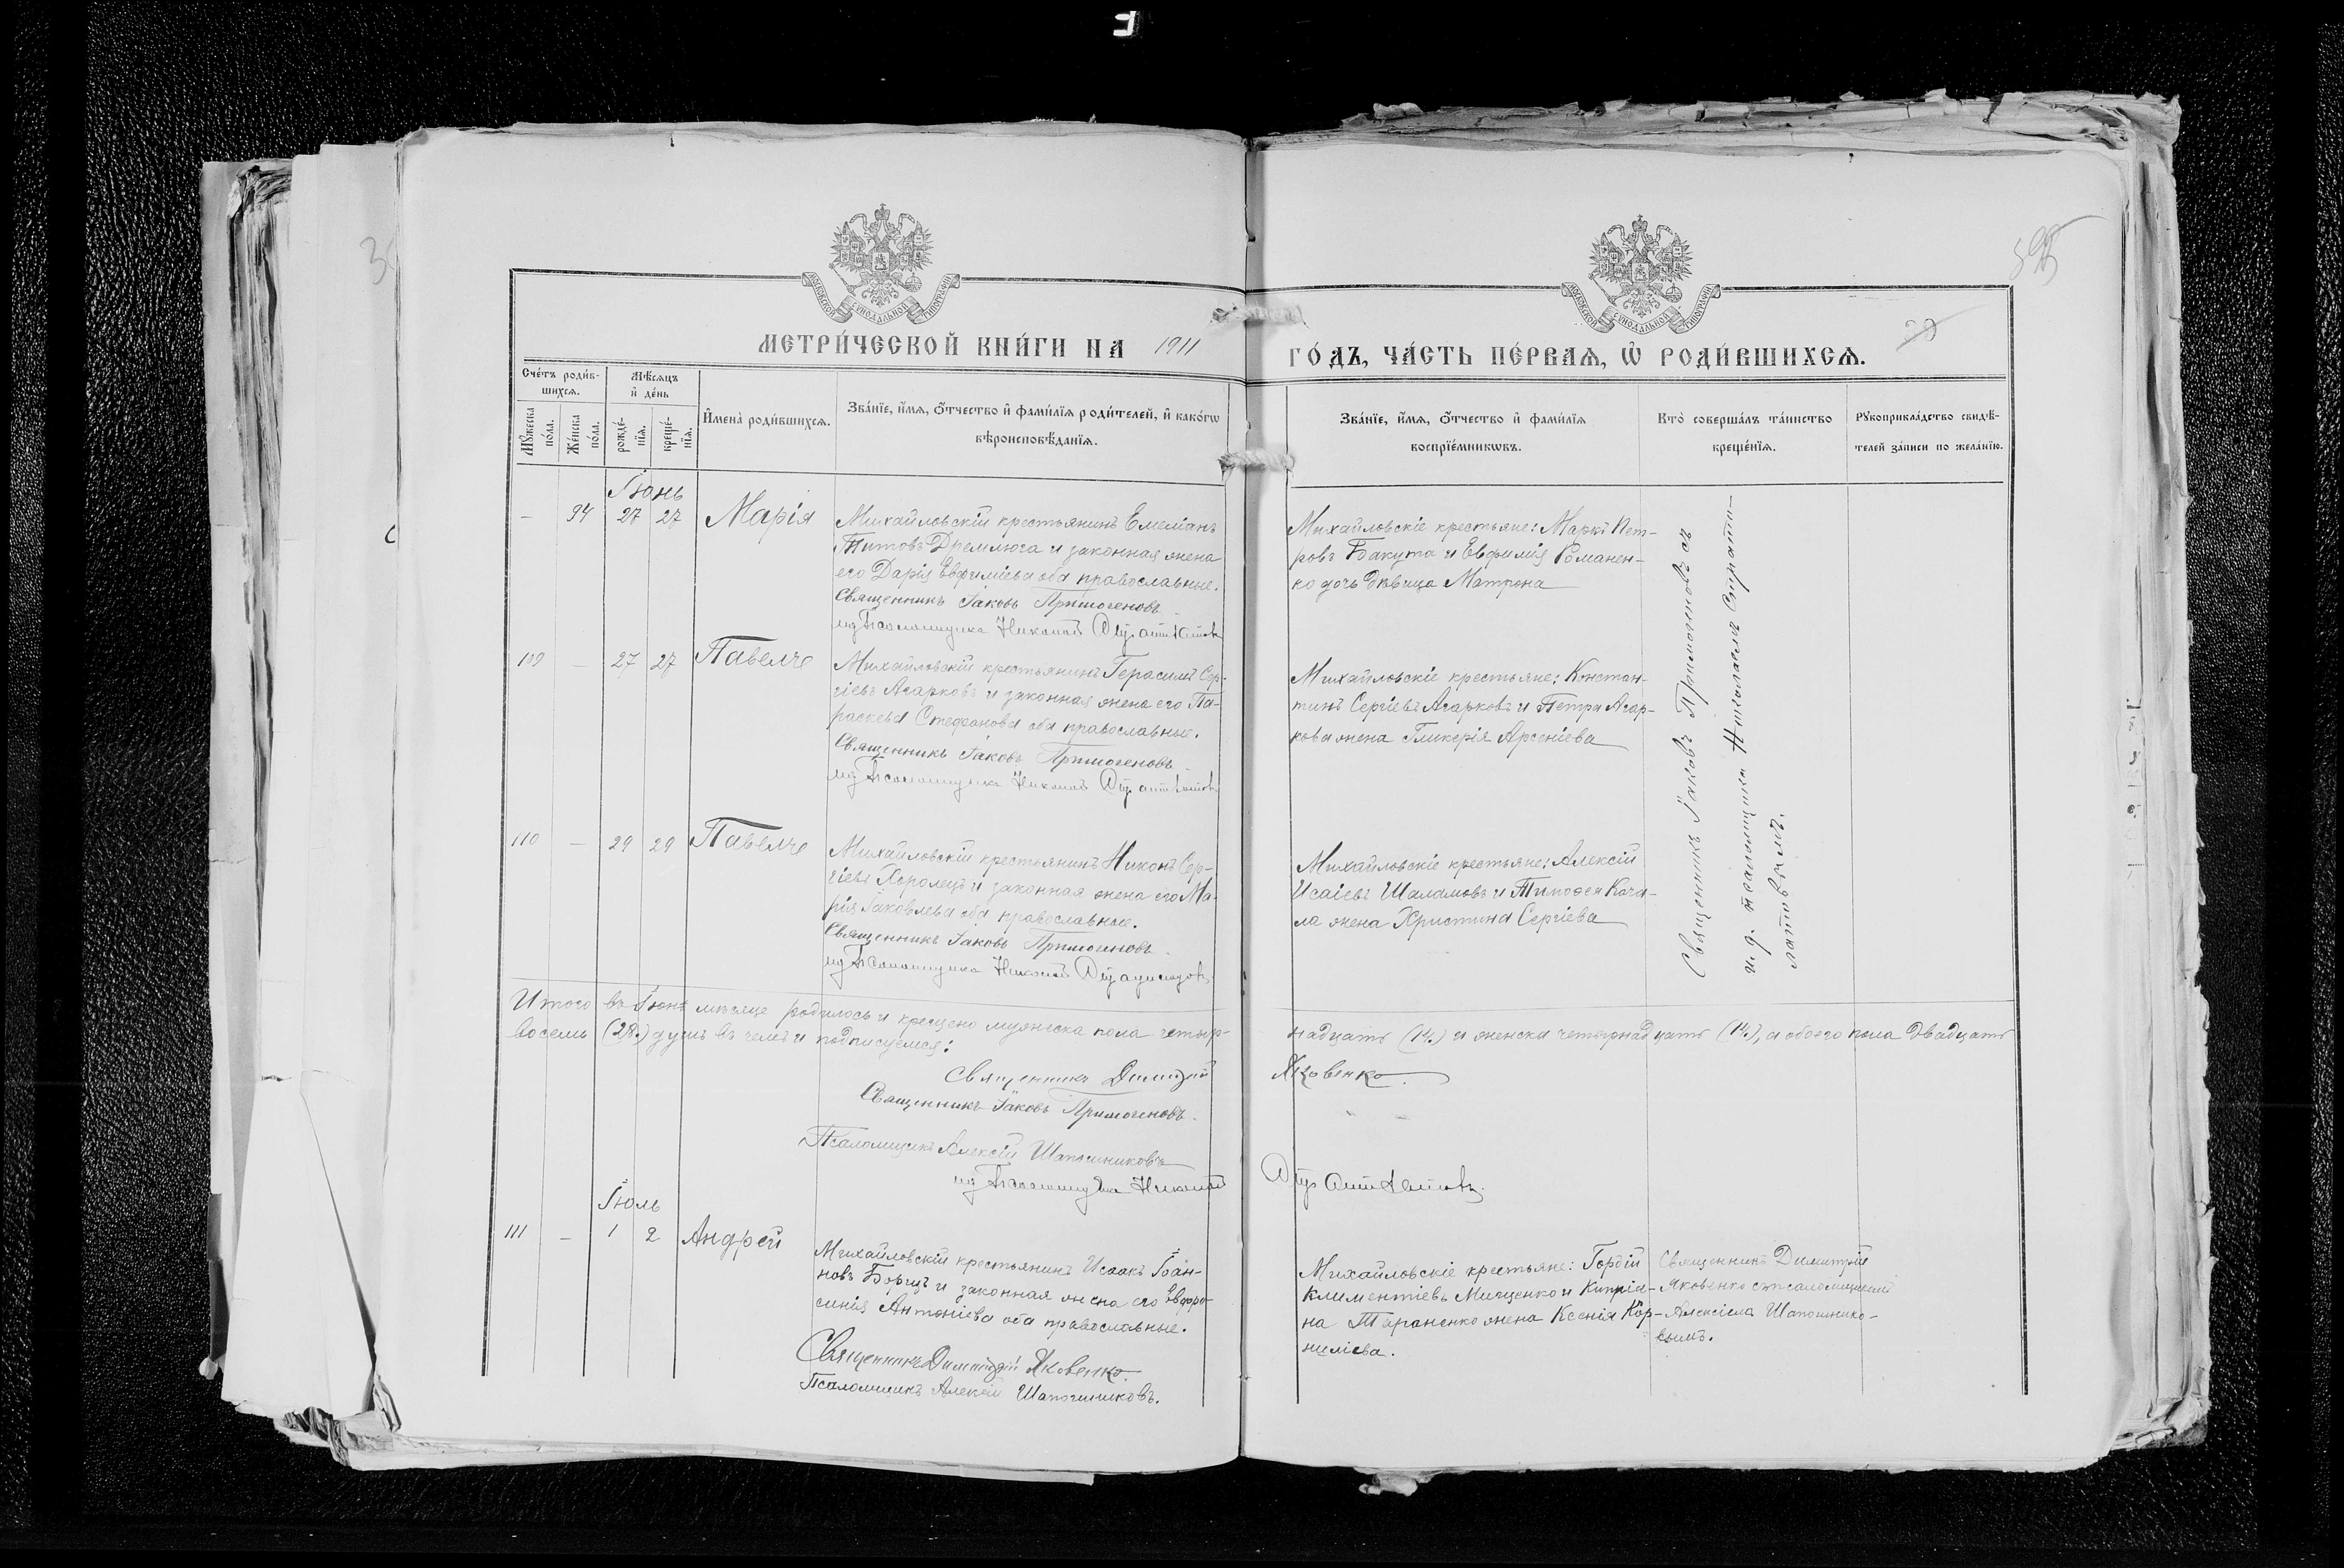 595
29
МОСКОВСКОЙ СѴНОДАЛЬНОЙ ТИПОГРАФІИ
МОСКОВСКОЙ СѴНОДАЛЬНОЙ ТИПОГРАФІИ
МЕТРИ́ЧЕСКОЙ КНИ́ГИ НА 1911
ГО́ДЪ, ЧА́СТЬ ПЕ́РВАѦ, Ѡ҆ РОДИ́ВШИХСѦ.
Сче́тъ роди́в-
шихсѧ.
Мꙋ́жеска
по́ла.
Же́нска
по́ла.
Мѣ́сѧцъ
и҆ де́нь
рожде́-
нїѧ.
креще́-
нїѧ.
И҆мена̀ роди́вшихсѧ.
Зва́нїе, и҆́мѧ, ѻ҆́тчество и҆ фами́лїѧ роди́телей, и҆ како́гѡ
вѣроисповѣ́данїѧ.
Зва́нїе, и҆́мѧ, ѻ҆́тчество и҆ фами́лїѧ
воспрїе́мникѡвъ.
Кто̀ соверша́лъ та́инство
креще́нїѧ.
Рꙋкоприкла́дство свидѣ́-
телей за́писи по жела́нїю.
Іюнь
— 94 27 27 Марія
Михайловскій крестьянинъ Емеліанъ
Титовъ Дремлюга и законная жена
его Дарія Евфиміева оба православные.
Священникъ Іаковъ Примогеновъ
ид Псаломщика Николай
Михайловскіе крестьяне: Маркъ Пет-
ровъ Бакута и Евфимія Романен-
ко дочь дѣвица Матрона
Священникъ Іаковъ Примогеновъ съ
и. д. псаломщика Николаемъ Страти-
латовымъ.
109 — 27 27 Павелъ
Михайловскій крестьянинъ Герасимъ Сер-
гіевъ Агарковъ и законная жена его Па-
раскева Стефанова оба православные.
Священникъ Іаковъ Примогеновъ
ид Псаломщика Николай
Михайловскіе крестьяне: Констан-
тинъ Сергіевъ Агарковъ и Петра Агар-
кова жена Гликерія Арсеніева
110 — 29 29 Павелъ
Михайловскій крестьянинъ Никонъ Сер-
гіевъ Королецъ и законная жена его Ма-
рія Іаковлева оба православные.
Священникъ Іаковъ Примогеновъ
ид Псаломщика Николай
Михайловскіе крестьяне: Алексій
Исаіевъ Шаламовъ и Тимофея Кача-
ла жена Христина Сергіева
Итого въ Іюнѣ мѣсяце родилось и крещено мужеска пола четыр-
надцать (14.) и женска четырнадцать (14.), а обоего пола двадцать
восемь (28.) душъ въ чемъ и подписуемся:
Священникъ Димитрій Яковенко.
Священникъ Іаковъ Примогеновъ.
Псаломщикъ Алексій Шапошниковъ
ид Псаломщика Николай
Іюль
111 — 1 2 Андрей
Михайловскій крестьянинъ Исаакъ Іоан-
новъ Борщъ и законная жена его Евфро-
синія Антоніева оба православные.
Священникъ Димитрій Яковенко.
Псаломщикъ Алексій Шапошниковъ.
Михайловскіе крестьяне: Гордій
Климентіевъ Мищенко и Кипріа-
на Тараненко жена Ксенія Кор-
ниліева.
Священникъ Димитрій
Яковенко съ псаломщикомъ
Алексіемъ Шапошнико-
вымъ.